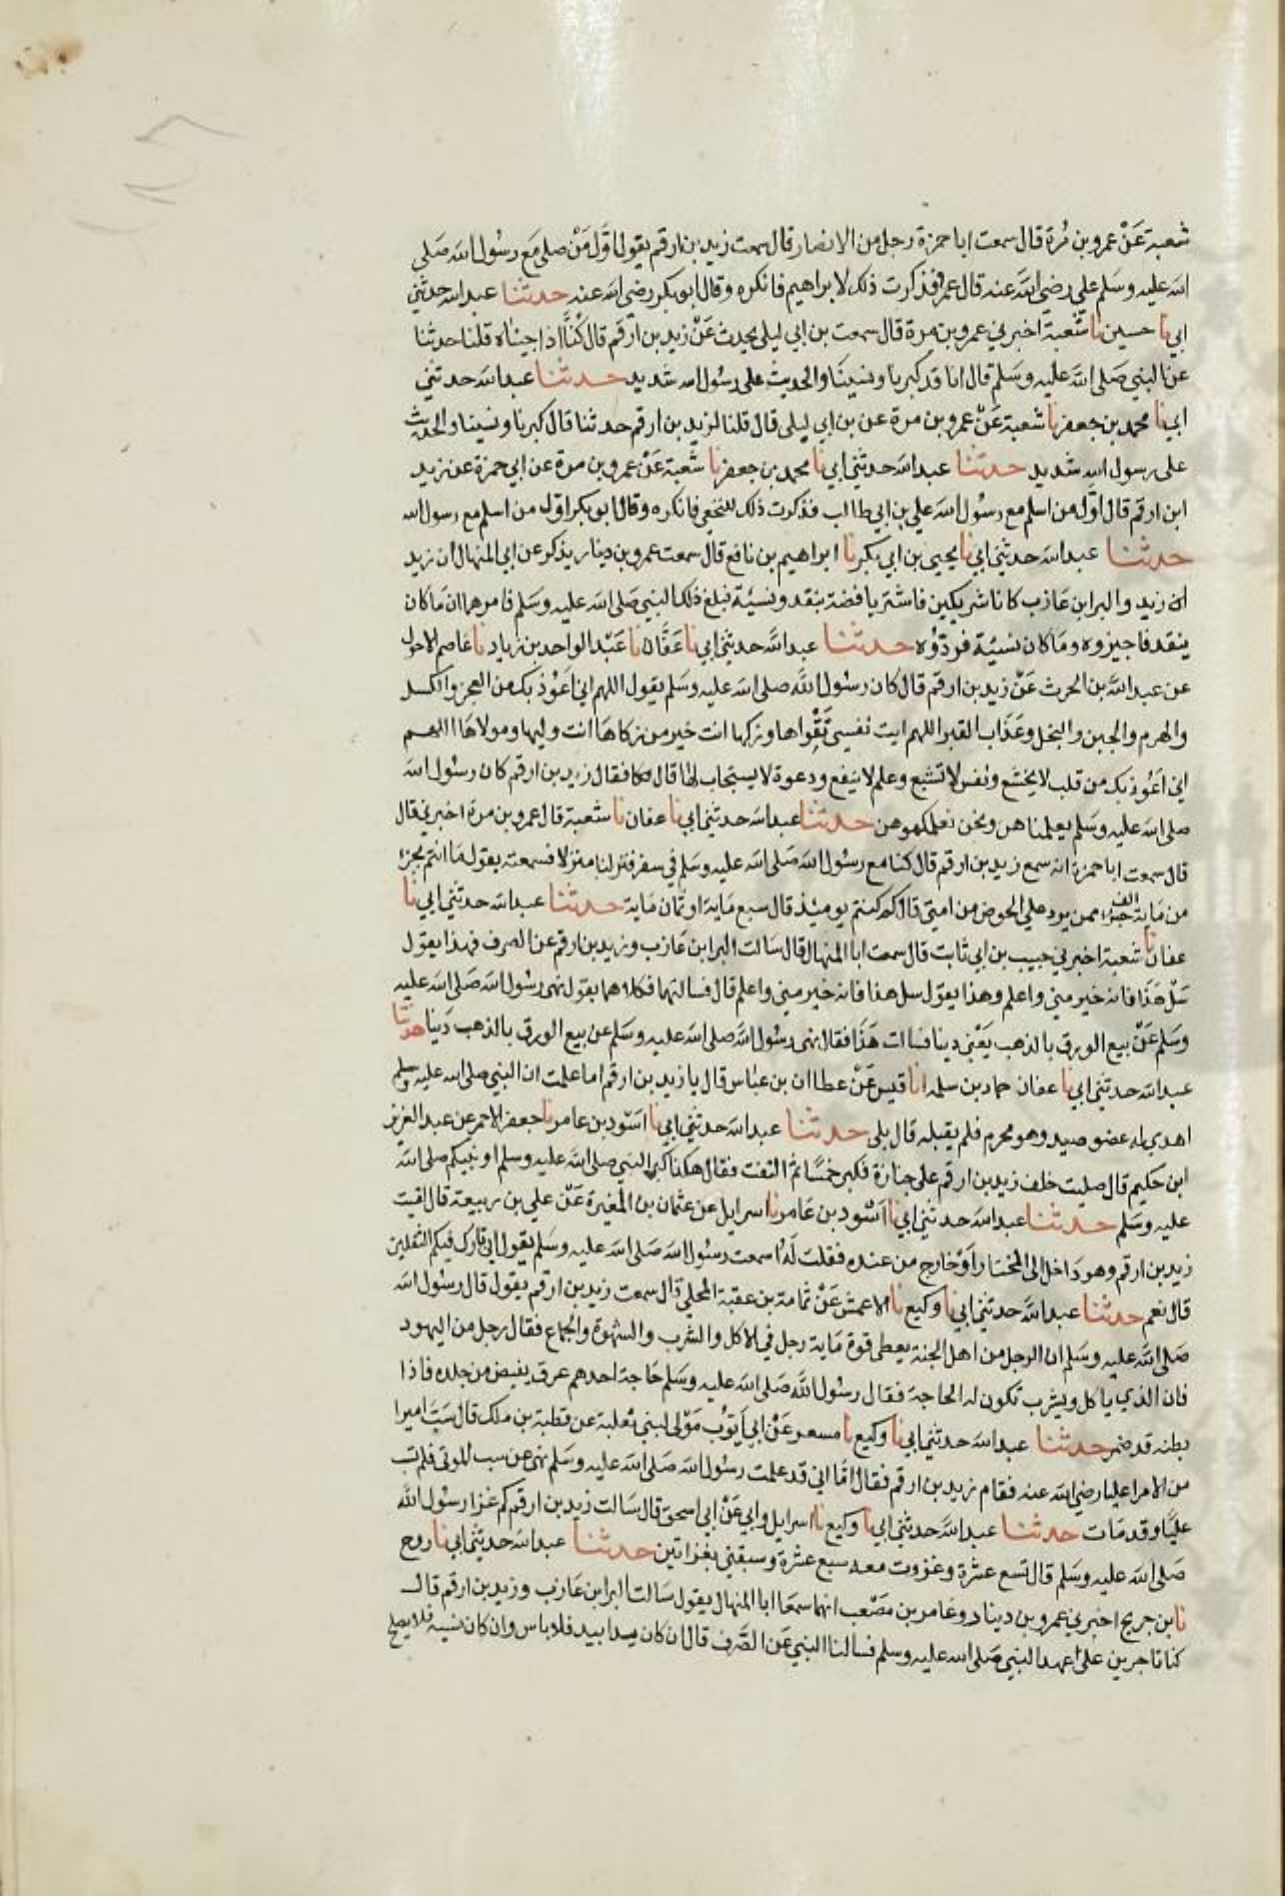 شعبة عَنْ عمرو بن مُرة قال سمعت ابا حمزة رجل من الانصار قال سمعت زيد بن ارقم يقول اوَّل مَنْ صلى مَع رسُول الله صَلى
الله عليه وسَلم علي رضي الله عنه قال عمرو فذكرت ذلك لابراهيم فانكره وقال ابو بكر رضي الله عنه حدثنا عبد الله حدثني
ابي نا حسين نا شعبة اخبرني عمرو بن مرة قال سمعت بن ابي ليلى يحدث عَنْ زيد بن ارقم قال كُنَّا اذا جيناه قلنا حدثنا
عن النبي صَلى الله عليه وسَلم قال انا قد كبرنا ونسينَا والحديث على رسُول الله شديد حدثنا عبد الله حدثني
ابي نا محمد بن جعفر نا شعبة عَنْ عمرو بن مرة عن بن ابي ليلى قال قلنا لزيد بن ارقم حدثنا قال كبرنا ونسينا والحديث
على رسول الله شديد حدثنا عبد الله حدثني ابي نا محمد بن جعفر نا شعبة عَنْ عمرو بن مرة عن ابي حمزة عن زيد
ابن ارقم قال اوَّل من اسلم مع رسُول الله علي بن ابي طالب فذكرت ذلك للنخعي فانكره وقال ابو بكر اوّل من اسلم مع رسول الله
حدثنا عبد الله حدثني ابي نا يحيى بن ابي بكير نا ابراهيم بن نافع قال سمعت عمرو بن دينار يذكر عن ابي المنهال ان زيد
ان زيد والبرا بن عَازب كانا شريكين فاشتريا فضة بنقد ونسيئة فبلغ ذلك النبي صَلى الله عليه وسَلم فامرهما ان مَا كان
ينقد فاجيزوه ومَا كان نسيئة فردّوُه حدثنا عبد الله حدثني ابي نا عَفَّان نا عَبْد الواحد بن زياد نا عَاصم الاحول
عن عبد الله بن الحرث عَنْ زيد بن ارقم قال كان رسُول الله صلى الله عليه وسَلم يقول اللهم اني اعُوذ بك من العجز والكسل
والهرم والجبن والبخل وعَذاب القبر اللهم ايت نفسي تَقْواها وزكها انت خير من زكاهَا انت وليها ومولاهَا اللهم
اني اعَوُذ بك من قلب لا يخشع ونفس لا تشبع وعلم لا ينفع ودعوة لا يستجاب لها قال فقال زيد بن ارقم كان رسُول الله
صلى الله عليه وسَلم يعلمناهن ونحن نعلمكموهن حدثنا عبد الله حدثني ابي نا عفان نا شعبة قال عمرو بن مرة اخبرني قال
قال سمعت ابا حمزة انه سمع زيد بن ارقم قال كنا مع رسُول الله صَلى الله عليه وسَلم في سفر فنزلنا منزلا فسمعته يقول مَا انتم بجزء
من مَاية الف جزء ممن يرد علي الحوض من امتي قال كم كنتم يوميذ قال سبع مَاية او ثمان مَاية حدثنا عبد الله حدثني ابي نا
عفان نا شعبة اخبرني حبيب بن ابي ثابت قال سمعت ابا المنهال قال سَالت البرا بن عَازب وزيد بن ارقم عن الصرف فهذا يقول
سَلْ هَذَا فانه خير مني واعلم وهذا يقول سل هذا فانه خير مني واعلم قال فسالتهما فكلاهما يقول نهى رسُول الله صَلى الله عليه
وسَلم عَنْ بيع الورق بالذهب يَعْني دينا فسالت هَذَا فقال نهى رسُول الله صلى الله عليه وسَلم عن بيع الورق بالذهب دَينا حدثنا
عبد الله حدثني ابي نا عفان حماد بن سلمه انا قيس عَنْ عطا ان بن عباس قال يا زيد بن ارقم اما علمت ان النبي صلى الله عليه وسلم
اهدي له عضو صيد وهو محرم فلم يقبله قال بلى حدثنا عبد الله حدثني ابي نا اسَوْد بن عامر نا جعفر الاحمر عن عبد العزيز
ابن حكيم قال صليت خلف زيد بن ارقم على جنازة فكبر خمسًا ثم التفت فقال هكذا كبر النبي صلى الله عليه وسلم او نبيكم صلى الله
عليه وسَلم حدثنا عبد الله حدثني ابي نا اسَوْد بن عَامر نا اسرايل عن عثمان بن المغيرة عَنْ علي بن ربيعة قال لقيت
زيد بن ارقم وهو دَاخل الى المختار اوْ خارج من عنده فقلت لهُ سمعت رسُول الله صَلى الله عليه وسَلم يقول اني تارك فيكم الثقلين
قال نعم حدثنا عبد الله حدثني ابي نا وكيع نا الاعمش عَنْ ثمامة بن عقبة المحلي قال سمعت زيد بن ارقم يقول قال رسُول الله
صَلى الله عليه وسَلم ان الرجل من اهل الجنة يعطى قوة مَاية رجل في الاكل والشرب والشهوة والجماع فقال رجل من اليهود
فان الذي ياكل ويشرب تكون له الحاجة فقال رسُول الله صَلى الله عليه وسَلم حَاجة احدهم عرق يفيض من جلده فاذا
بطنه قد ضمر حدثنا عبد الله حدثني ابي نا وكيع نا مسعر عَنْ ابي اَيوُّب مَوْلى لبني ثعلبة عن قطبة بن ملك قال سَبَّ امير
من الامرا عليا رضي الله عنه فقام زيد بن ارقم فقال امَّا اني قد علمت رسُول الله صَلى الله عليه وسَلم نهى عن سب الموتى فلم تسب
عليًّا وقد مَات حدثنا عبد الله حدثني ابي نا وكيع نا اسرايل وابي عَنْ ابي اسحق قال سَالت زيد بن ارقم كم غزا رسُول الله
صَلى الله عليه وسَلم قال تسع عشرة وغزوت معه سبع عشرة وسبقني بغزاتين حدثنا عبد الله حدثني ابي نا روح
نا بن جريج اخبرني عمرو بن دينار وعَامر بن مصْعَب انهما سمعَا ابا المنهال يقول سَالت البرا بن عَازب وزيد بن ارقم قال
كنا تاجرين على عهد النبي صَلى الله عليه وسلم فسالنا النبي عَن الصَّرف قال ان كان يدا بيد فلا باس وان كان نسية فلا يصلح